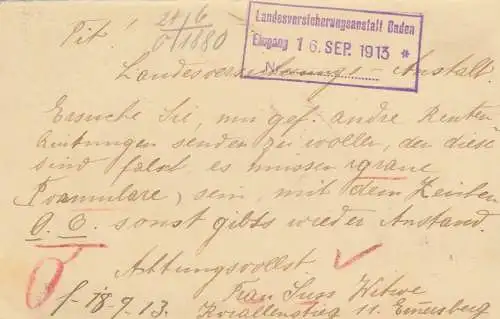 Tit!
24/6
6/1880
Landesversicherungsanstalt Baden
Eingang 16. SEP. 1913 *
N
Landesversicherungs-Anstalt.
Ersuche Sie, mir gef. andre Renten
quittungen senden zu wollen, den diese
sind falsch es müssen graue
Formulare, sein, mit dem Zeichen
O. O. sonst gibts wieder Anstand.
Achtungsvollst.
Frau Süss Witwe
18-9.13. Korallenstieg 11.